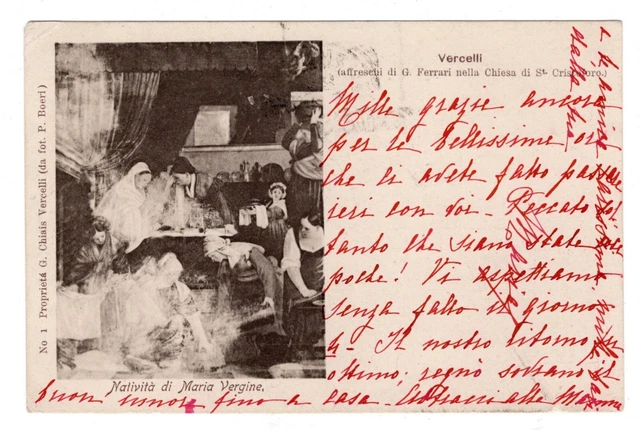 Vercelli
(affreschi di G. Ferrari nella Chiesa di St. Cristoforo.)
No 1 Proprietà G. Chiais Vercelli (da fot. P. Boeri)
Natività di Maria Vergine.
Mille grazie ancora
per le bellissime ore
che ci avete fatto passare
ieri con voi - Peccato sol
tanto che siano state
poche! Vi aspettiamo
senza fallo il giorno
4 - Il nostro ritorno fu
ottimo; regnò sovrano il
buon umore fino a casa.
dalla tua